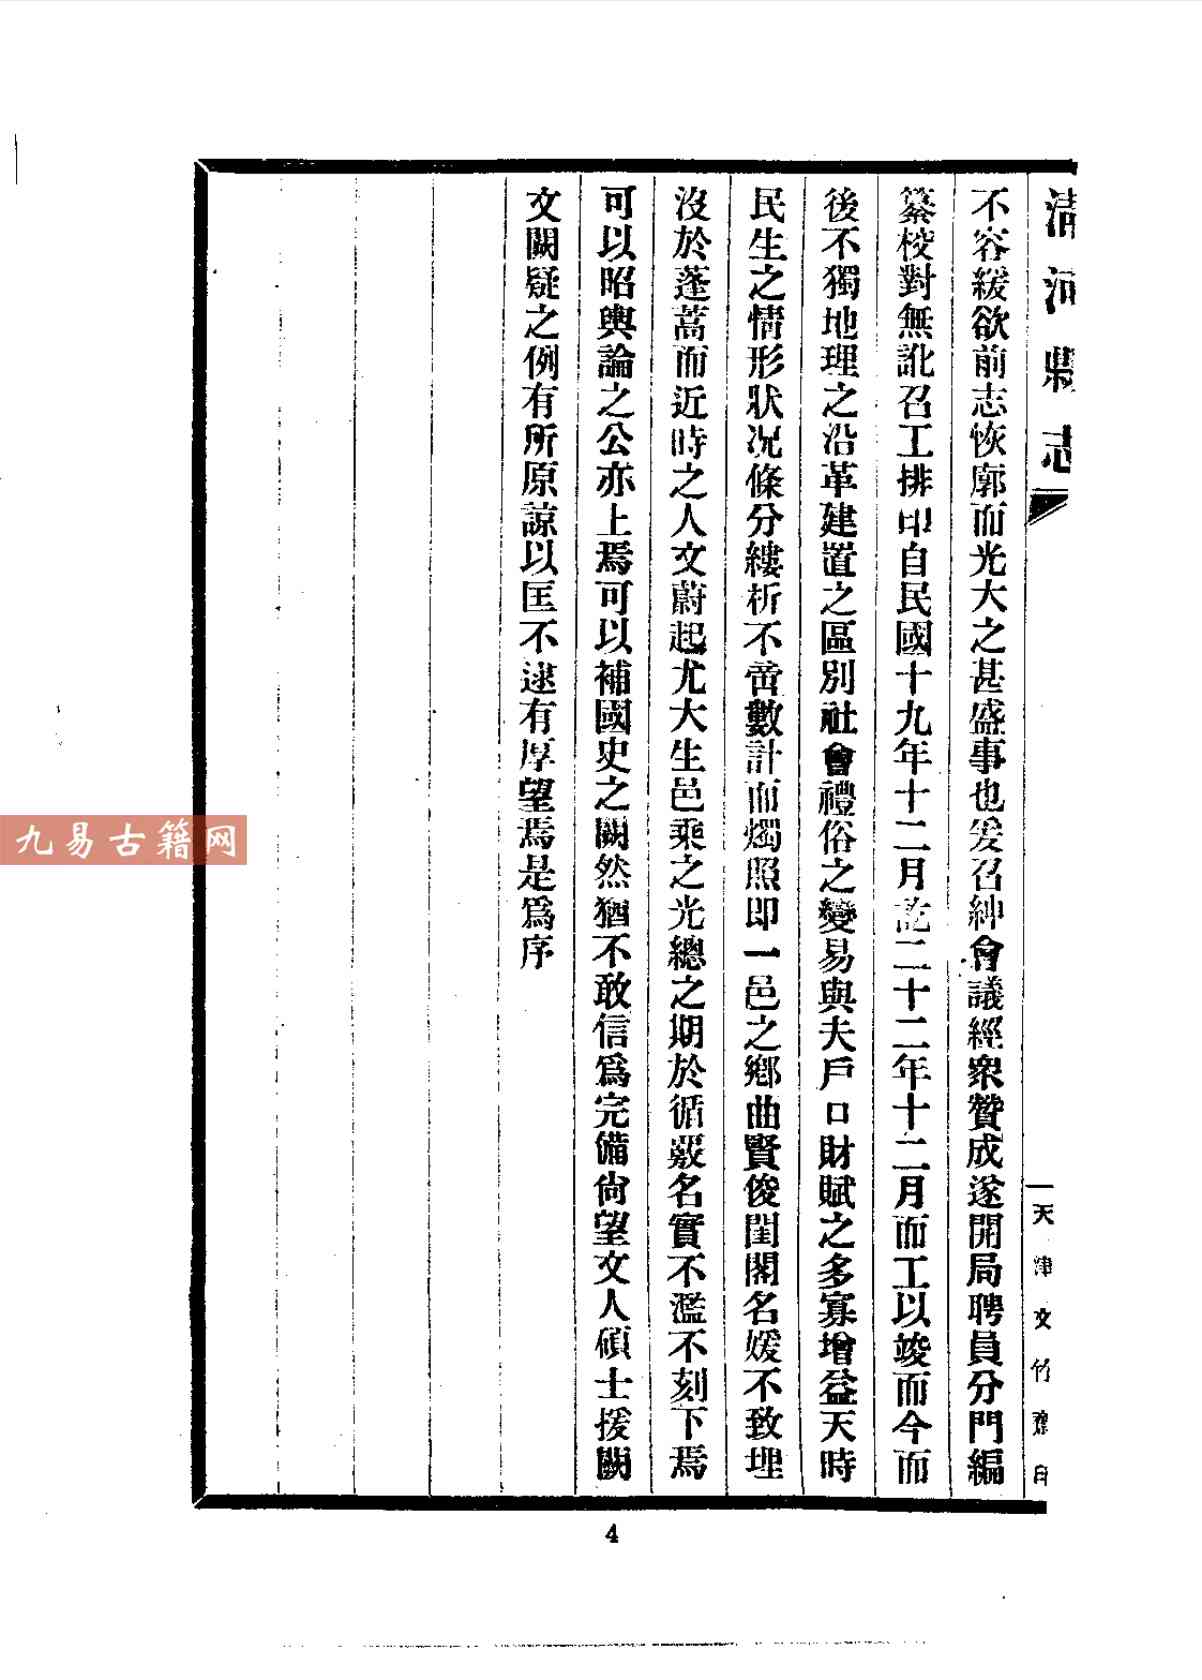 清河縣志
天津文竹齋印
不容緩欲前志恢廓而光大之甚盛事也爰召紳會議經衆贊成遂開局聘員分門編
纂校對無訛召工排印自民國十九年十二月訖二十二年十二月而工以竣而今而
後不獨地理之沿革建置之區別社會禮俗之變易與夫戶口財賦之多寡增益天時
民生之情形狀况條分縷析不啻數計而燭照即一邑之鄉曲賢俊閨閣名媛不致埋
沒於蓬蒿而近時之人文蔚起尤大生邑乘之光總之期於循覈名實不濫不刻下焉
可以昭輿論之公亦上焉可以補國史之闕然猶不敢信爲完備尙望文人碩士援闕
文闕疑之例有所原諒以匡不逮有厚望焉是爲序
九易古籍网
4